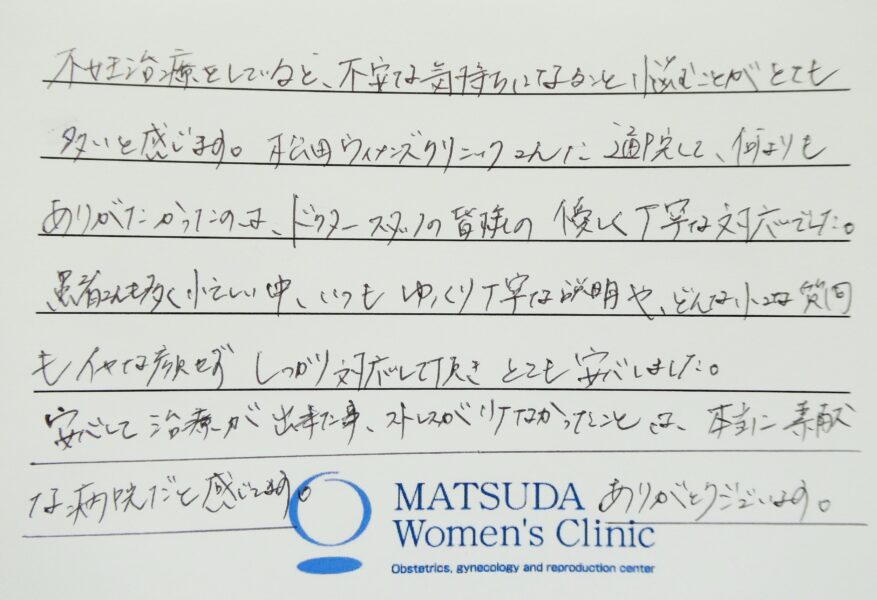 不妊治療をしていると、不安な気持ちになること悩むことがとても
多いと感じます。松田ウィメンズクリニックさんに通院して、何よりも
ありがたかったのは、ドクタースタッフの皆様の優しく丁寧な対応でした。
患者さんも多く忙しい中、いつもゆっくり丁寧な説明や、どんな小さな質問
もイヤな顔せずしっかり対応して頂きとても安心しました。
安心して治療が出来た事、ストレスが少なかったことは、本当に素敵
な病院だと感じてます。ありがとうございます。
MATSUDA
Women's Clinic
Obstetrics, gynecology and reproduction center